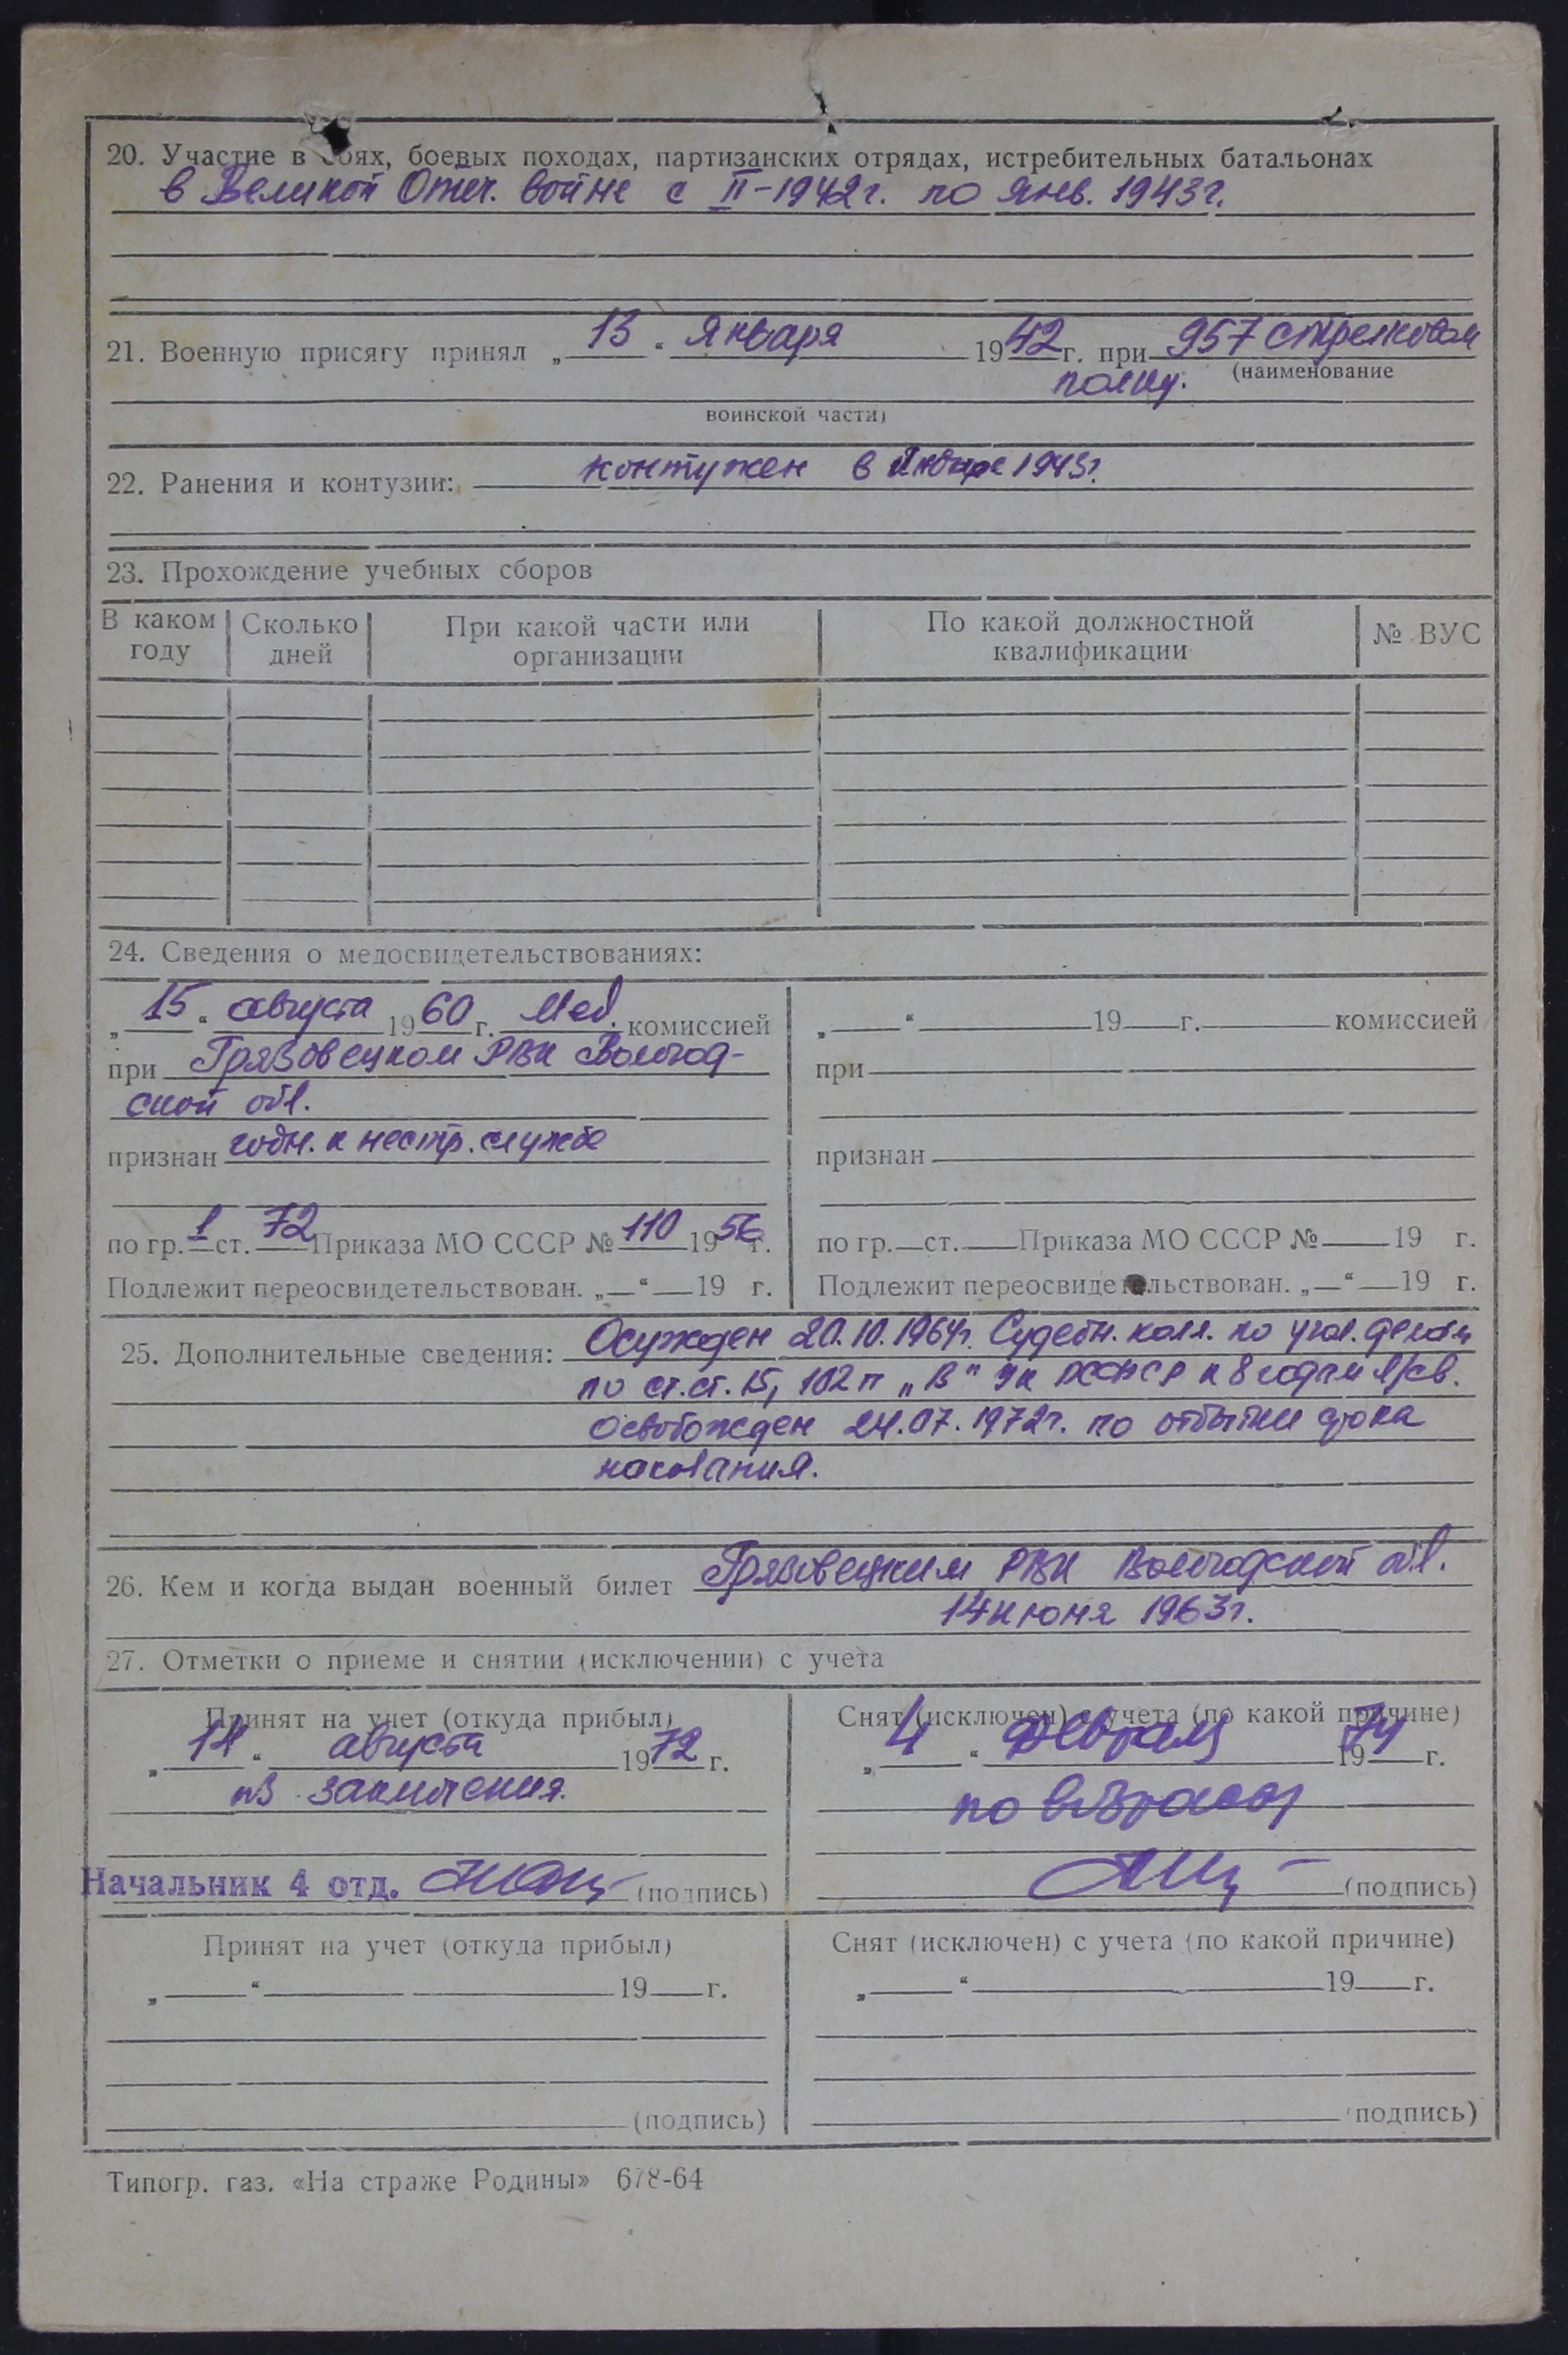 20. Участие в боях, боевых походах, партизанских отрядах, истребительных батальонах
в Великой Отеч. войне с II-1942г. по янв. 1943г.
21. Военную присягу принял „13“ января 1942г. при 957 стрелковом
(наименование
полку.
воинской части)
22. Ранения и контузии: контужен в январе 1943г.
23. Прохождение учебных сборов
В каком году Сколько дней При какой части или организации По какой должностной квалификации № ВУС
24. Сведения о медосвидетельствованиях:
„15“ августа 1960г. Мед. комиссией
при Грязовецком РВК Вологод-
ской обл.
признан годн. к нестр. службе
по гр. 1 ст. 72 Приказа МО СССР № 110 1956г.
Подлежит переосвидетельствован. „—“—19 г.
„—“ 19 г. комиссией
при
признан
по гр. ст. Приказа МО СССР № 19 г.
Подлежит переосвидетельствован. „—“—19 г.
25. Дополнительные сведения: Осужден 20.10.1964г. Судебн. колл. по угол. делам
по ст.ст. 15, 102 п „В“ УК РСФСР к 8 годам л/св.
освобожден 24.07.1972г. по отбытии срока
наказания.
26. Кем и когда выдан военный билет Грязовецким РВК Вологодской обл.
14 июня 1963г.
27. Отметки о приеме и снятии (исключении) с учета
Принят на учет (откуда прибыл)
„14“ августа 1972 г.
из заключения.
Начальник 4 отд. (подпись)
Снят (исключен) с учета (по какой причине)
„4“ февраля 1974 г.
по возрасту
(подпись)
Принят на учет (откуда прибыл)
„ “ 19 г.
(подпись)
Снят (исключен) с учета (по какой причине)
„ “ 19 г.
подпись)
Типогр. газ. «На страже Родины» 678-64